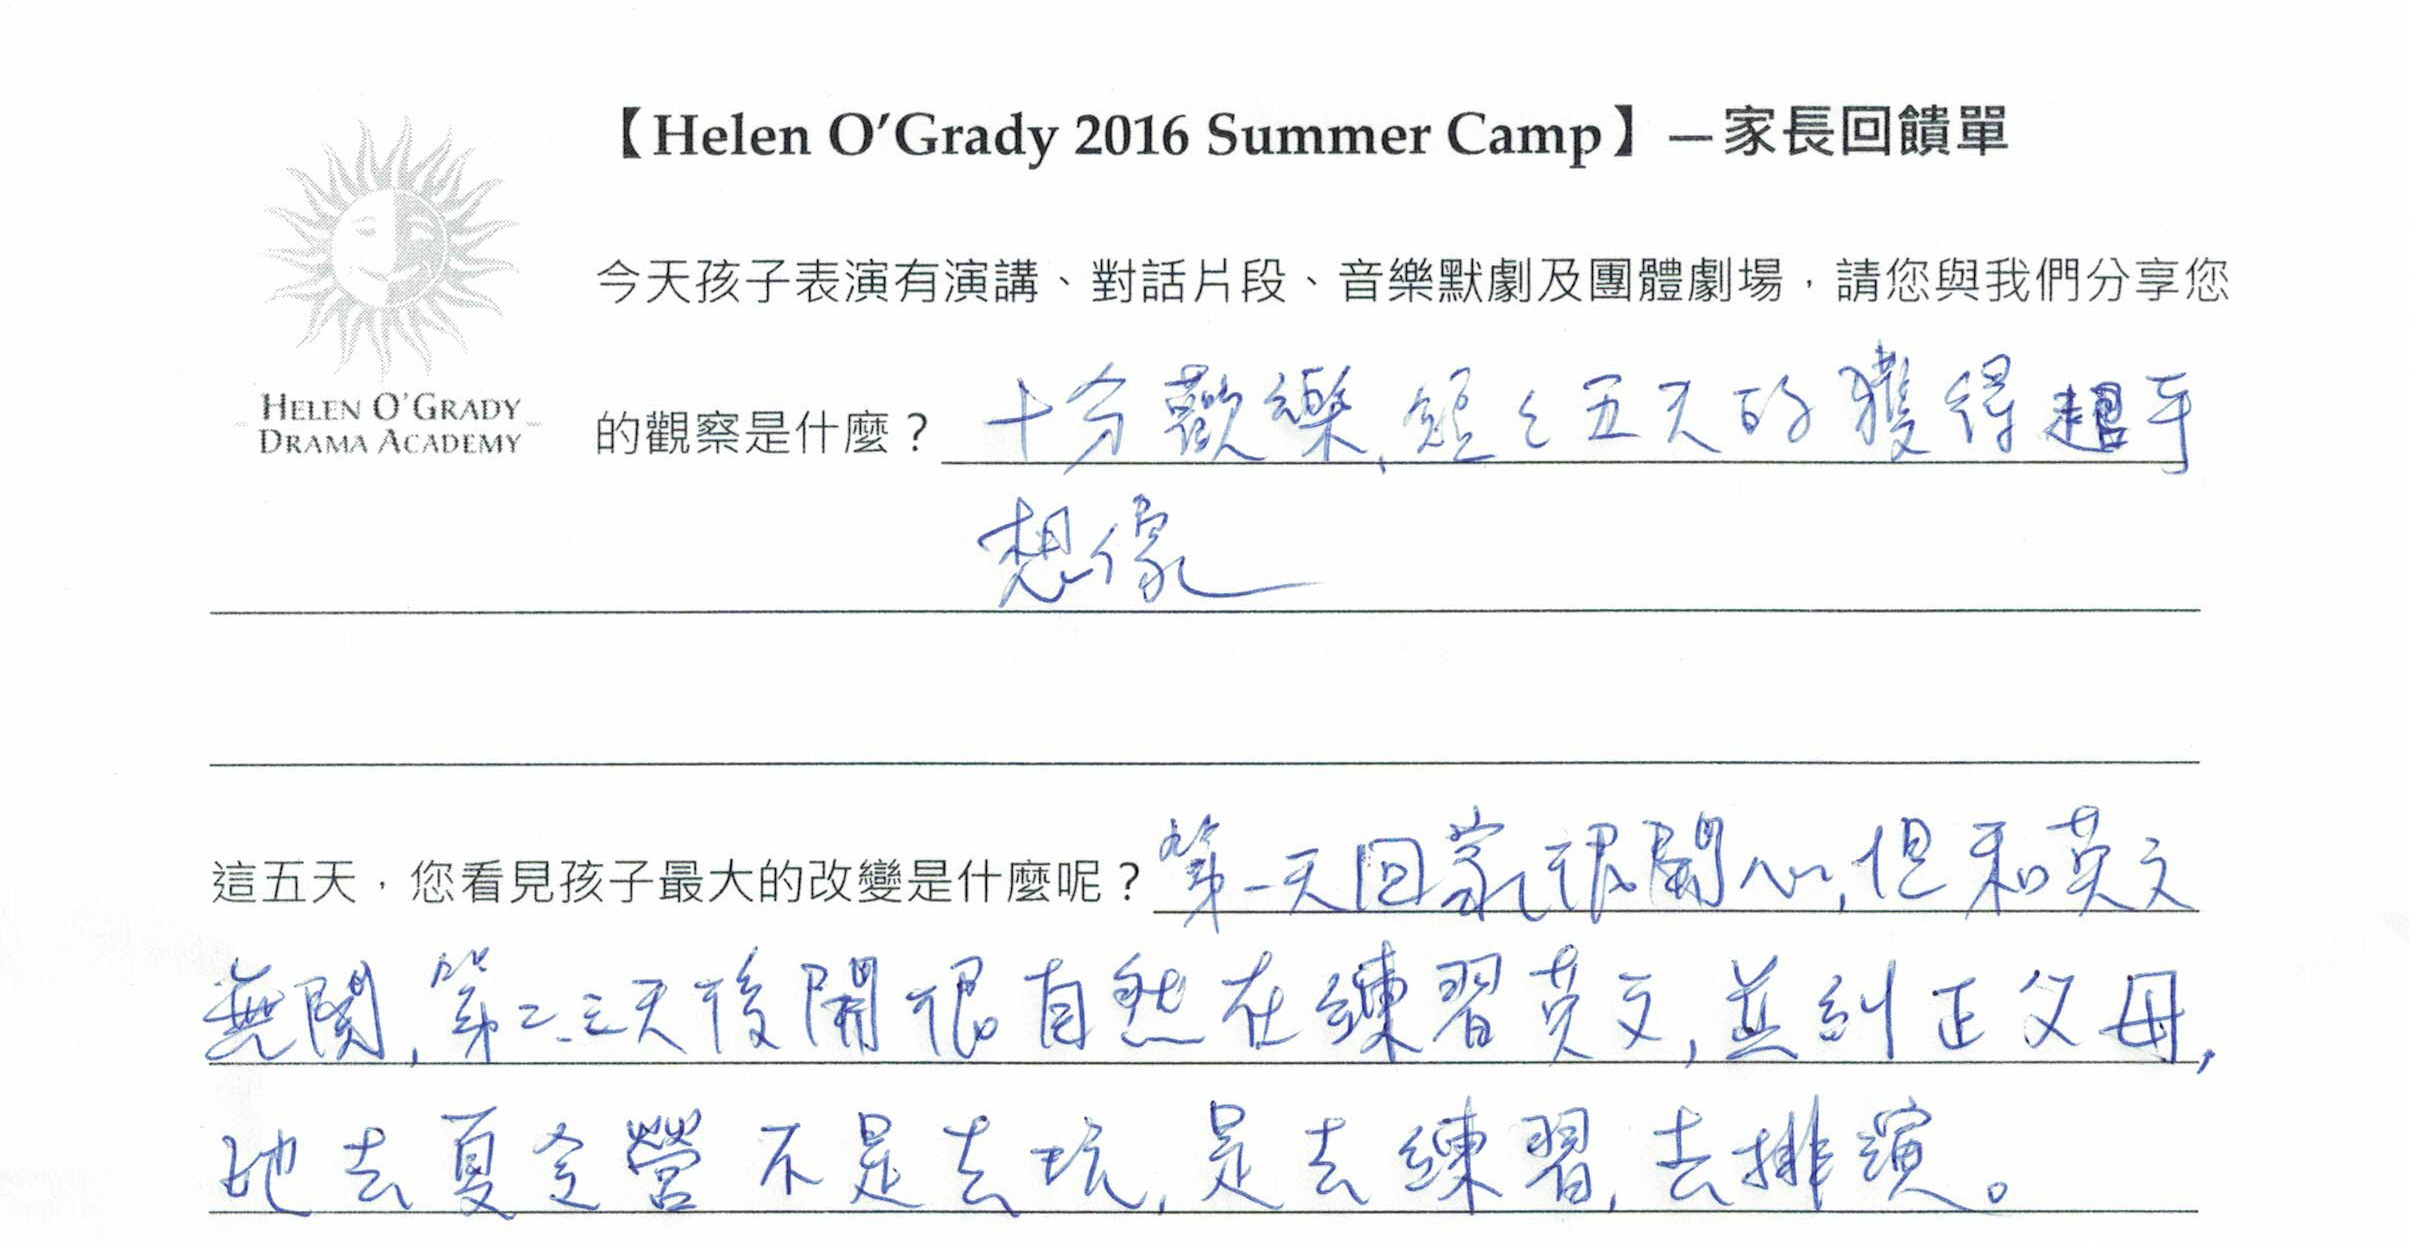 【Helen O'Grady 2016 Summer Camp】—家長回饋單
HELEN O'GRADY
DRAMA ACADEMY
今天孩子表演有演講、對話片段、音樂默劇及團體劇場，請您與我們分享您
的觀察是什麼？十分歡樂,短短五天的獲得超乎
想像
這五天，您看見孩子最大的改變是什麼呢？第一天回家很開心,但和英文
無關,第二.三天後開很自然在練習英文,並糾正父母,
她去夏令營不是去玩,是去練習,去排演。